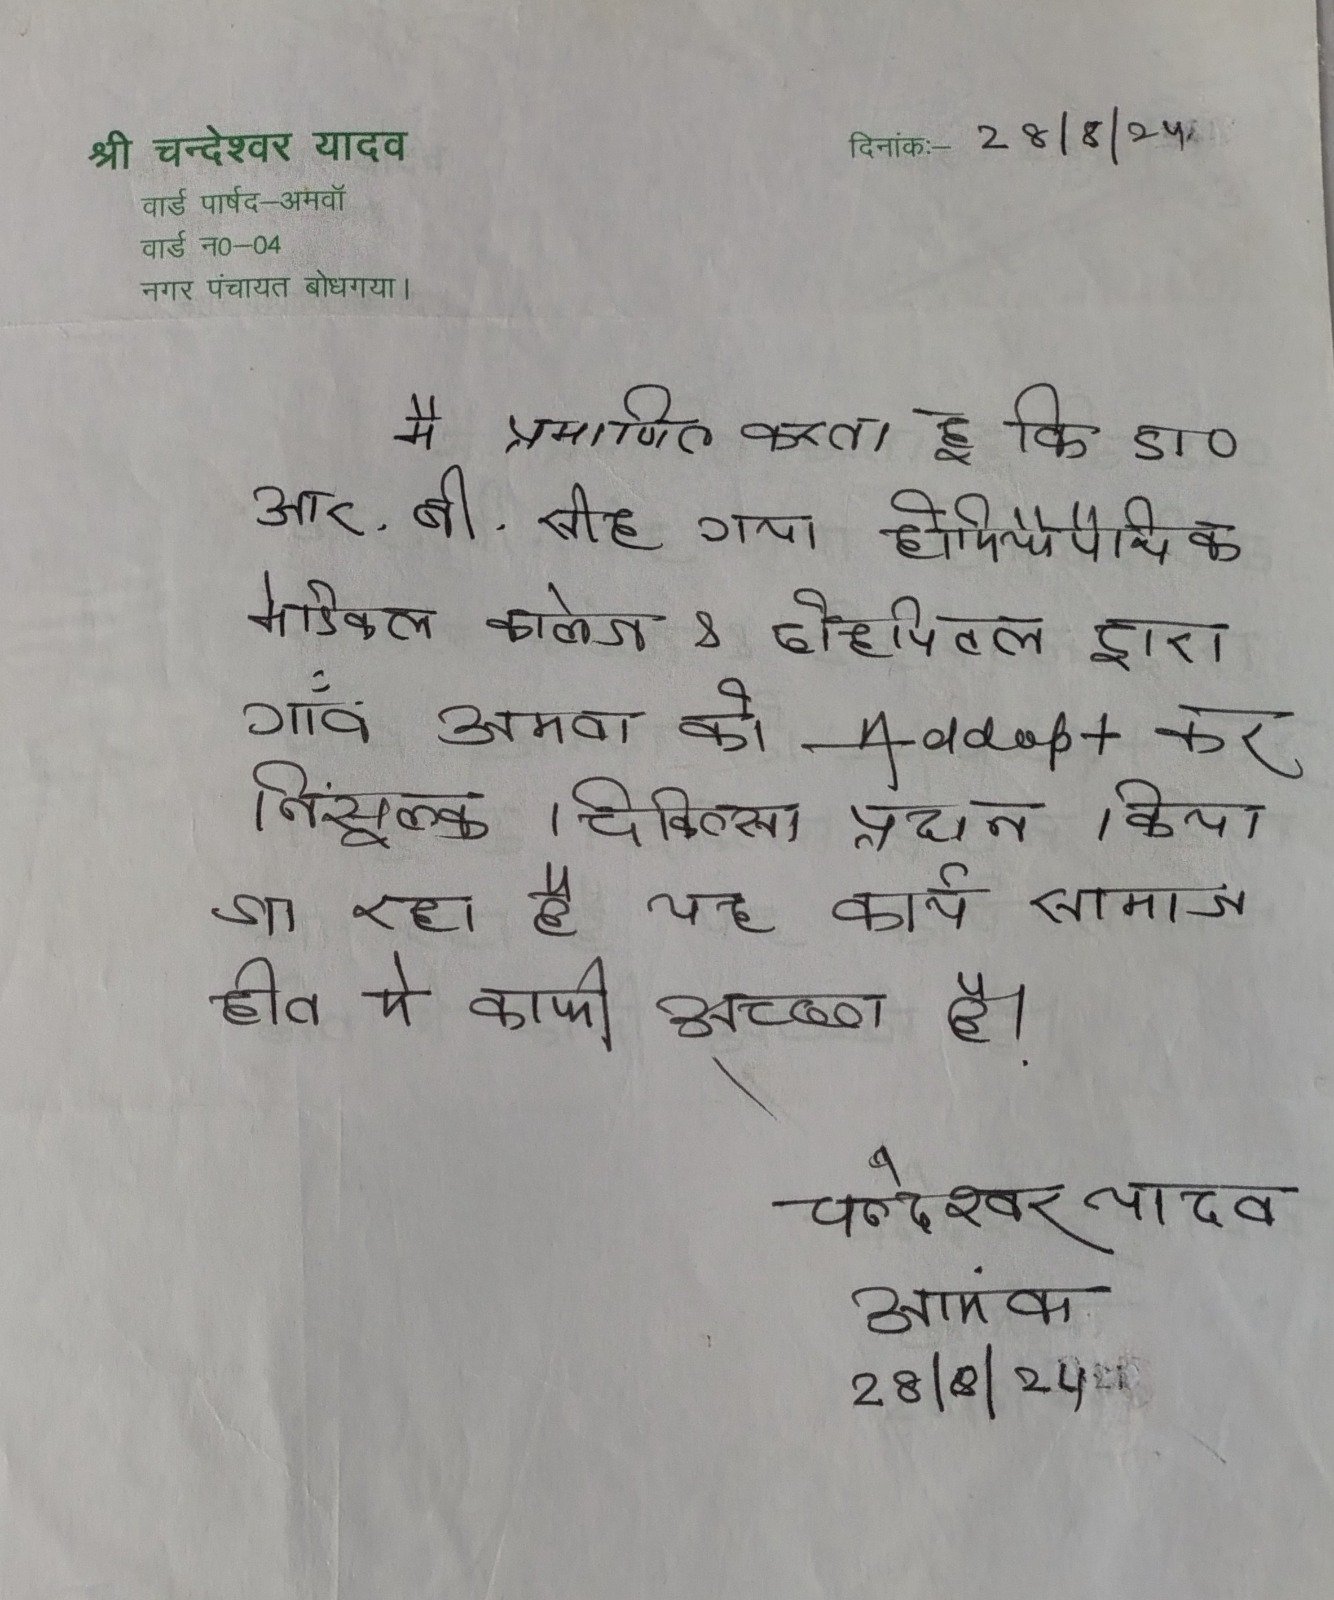 श्री चन्देश्वर यादव
दिनांकः– 28/8/24
वार्ड पार्षद–अमवॉ
वार्ड न0–04
नगर पंचायत बोधगया।
मै प्रमाणित करता हू कि डा०
आर. बी. सीह गया होमियोपैथिक
मेडिकल कालेज & हौस्पिटल द्वारा
गाँव अमवा को Addopt कर
निंसूल्क चिकित्सा प्रदान किया
जा रहा है यह कार्य सामाज
हीत मे काफी अच्छा है।
चन्देश्वर यादव
28/8/24